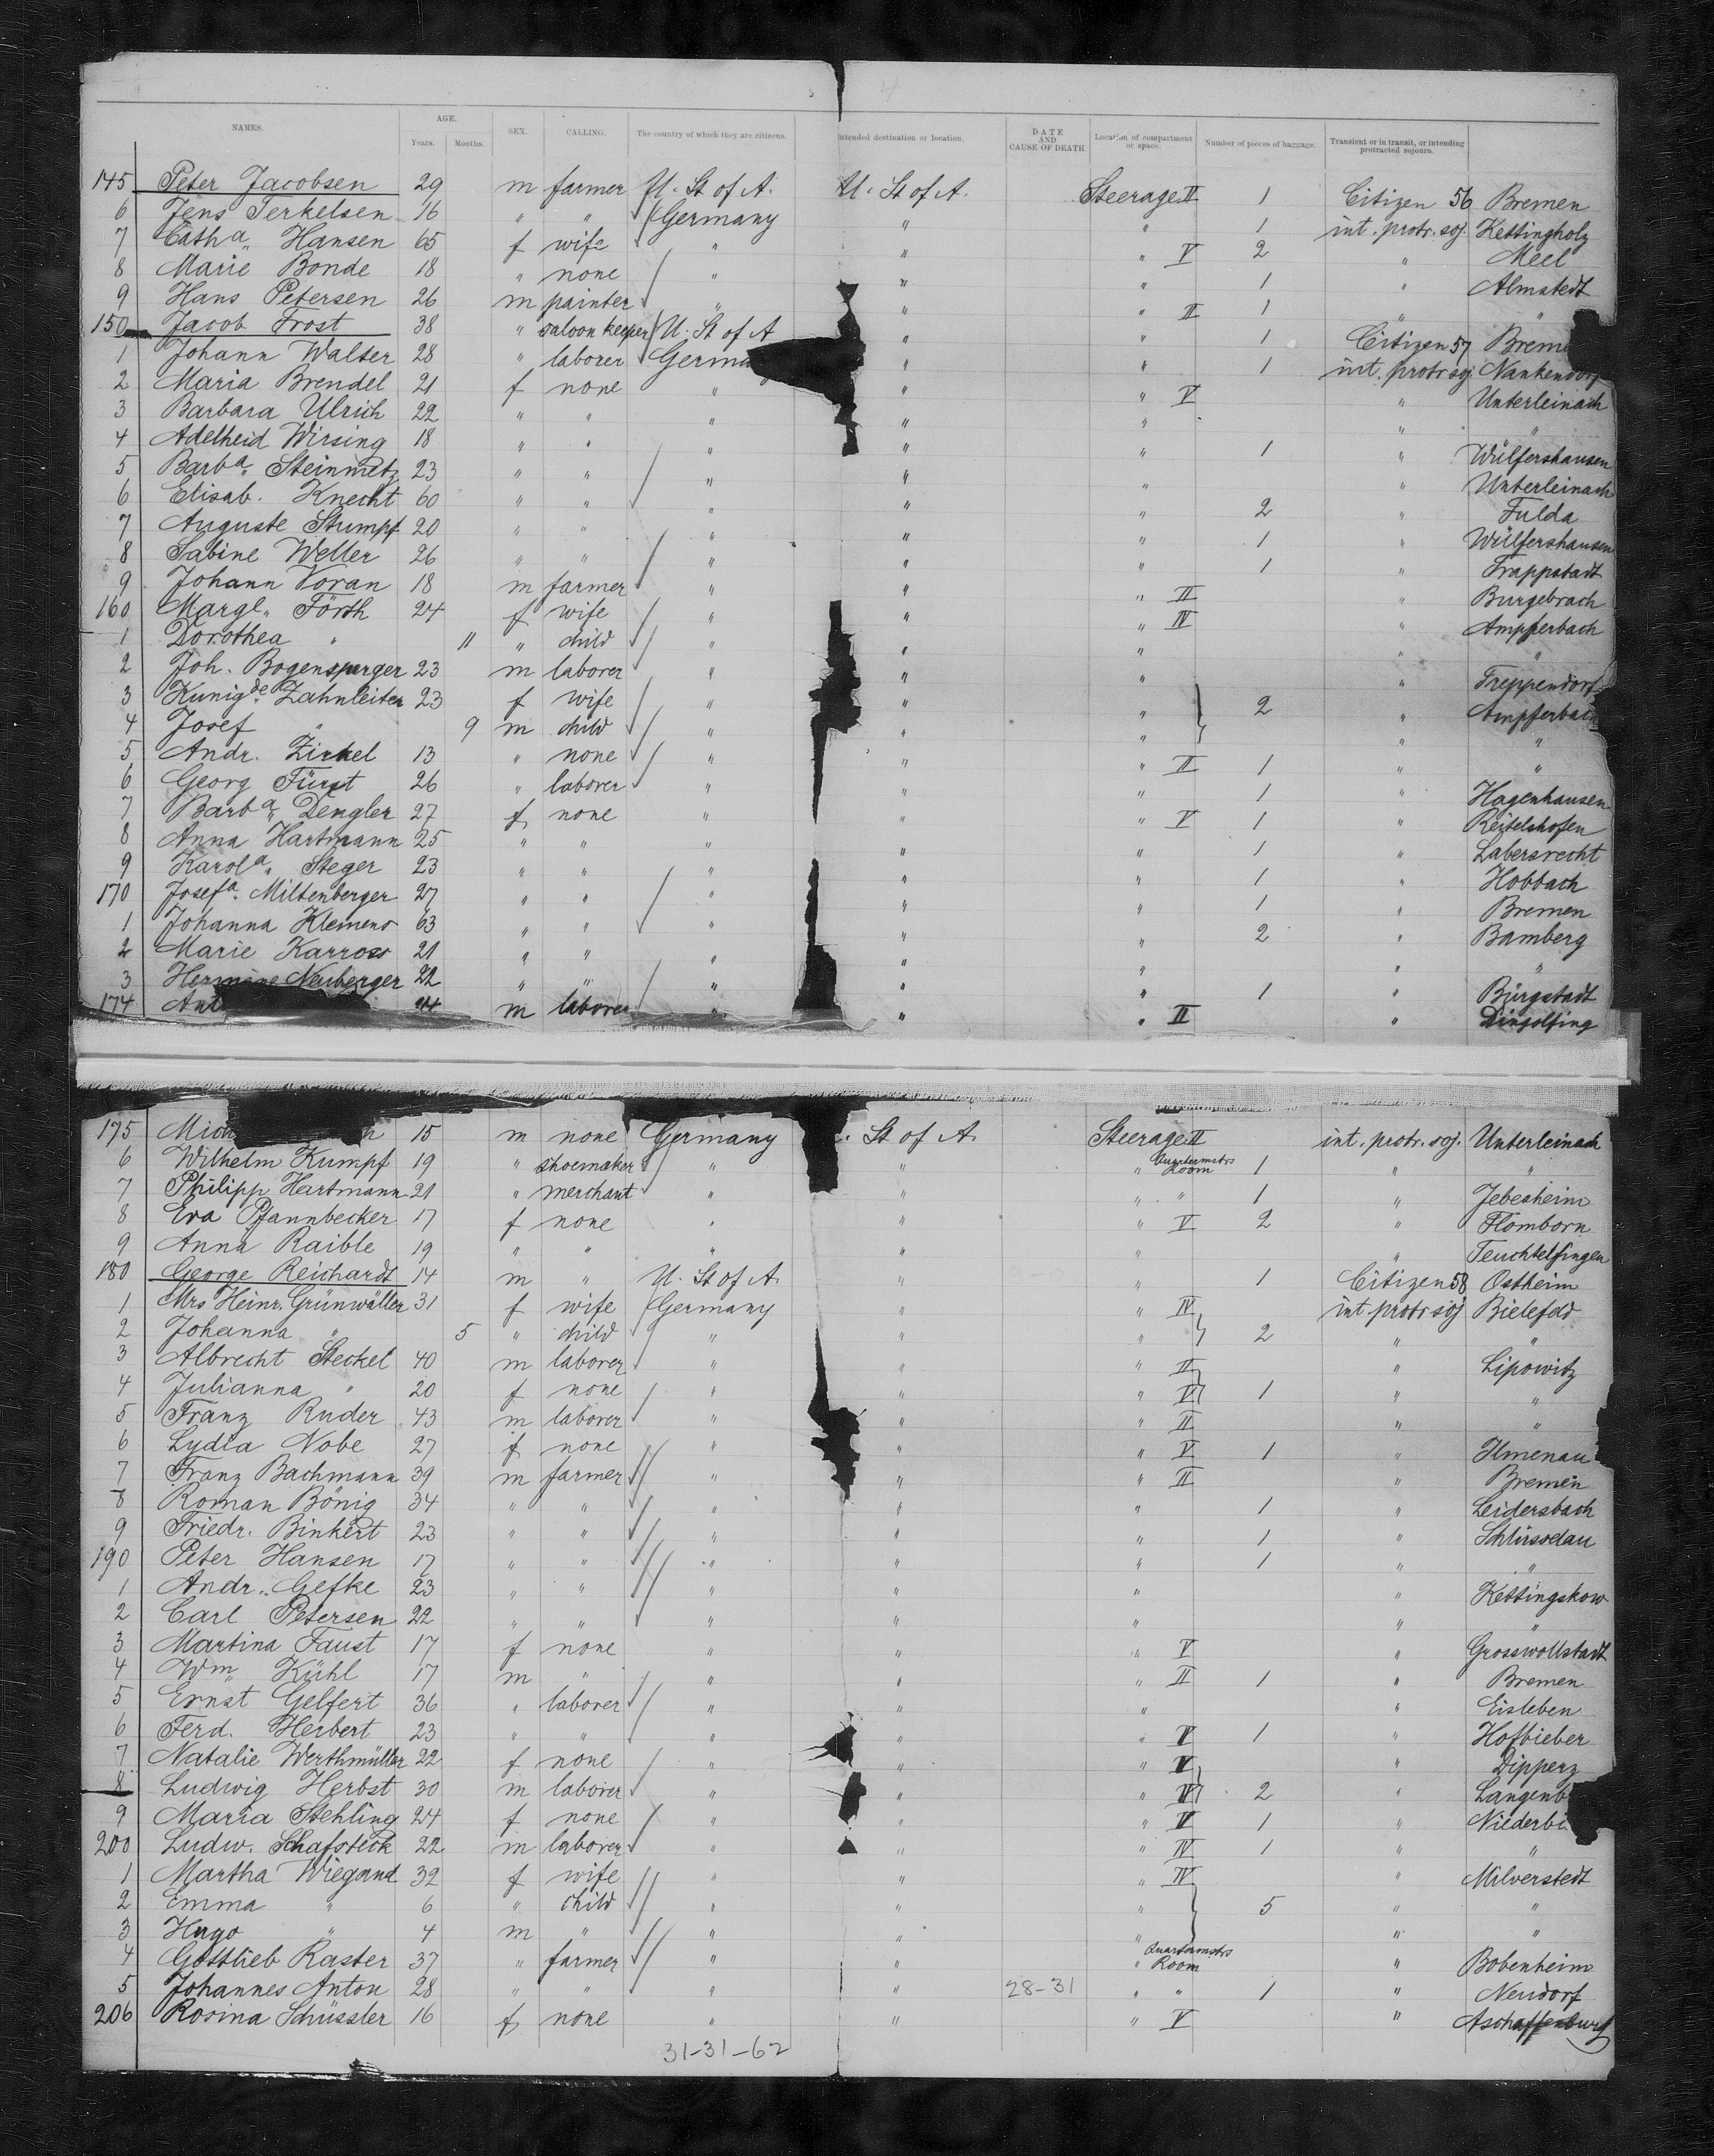 4
NAMES. AGE. SEX. CALLING. The country of which they are citizens. Intended destination or location. DATE AND CAUSE OF DEATH. Location of compartment or space. Number of pieces of baggage. Transient or in transit, or intending protracted sojourn.
Years. Months.
145 Peter Jacobsen 29 m farmer U. St of A. U. St of A. Steerage II 1 Citizen 56 Bremen
6 Jens Terkelsen 16 " " Germany " " 1 int. protr. soj. Kettingholz
7 Catha. Hansen 65 f wife " " " V 2 " Meel
8 Marie Bonde 18 " none " " " 1 " Almstedt
9 Hans Petersen 26 m painter " " " II 1 " "
150 Jacob Frost 38 " saloon keeper U. St of A " " 1 Citizen 57 Breme
1 Johann Walter 28 " laborer Germa " " 1 int. protr soj Nankendorf
2 Maria Brendel 21 f none " " " V " Unterleinach
3 Barbara Ulrich 22 " " " " " " "
4 Adelheid Wirsing 18 " " " " " 1 " Wülfershausen
5 Barba. Steinmetz 23 " " " " " " Unterleinach
6 Elisab. Knecht 60 " " " " " 2 " Fulda
7 Auguste Stumpf 20 " " " " " 1 " Wülfershausen
8 Sabine Weller 26 " " " " " 1 " Trappstadt
9 Johann Voran 18 m farmer " " " II " Burgebrach
160 Margt. Förth 24 f wife " " " IV " Ampferbach
1 Dorothea " 11 " child " " " " "
2 Joh. Bogensperger 23 m laborer " " " " Treppendorf
3 Kunigde. Zahnleiter 23 f wife " " " 2 " Ampferbach
4 Josef " 9 m child " " " " "
5 Andr. Zirkel 13 " none " " " II 1 " "
6 Georg Fürst 26 " laborer " " " 1 " Hagenhausen
7 Barba. Dengler 27 f none " " " V 1 " Reitelshofen
8 Anna Hartmann 25 " " " " " 1 " Labersrecht
9 Karola. Steger 23 " " " " " 1 " Hobbach
170 Josefa. Miltenberger 27 " " " " " 1 " Bremen
1 Johanna Klemens 63 " " " " " 2 " Bamberg
2 Marie Karross 21 " " " " " " "
3 Hermine Neuberger 22 " " " " " 1 " Bürgstadt
174 Ant 24 m laborer " " " II " Dingolfing
175 Mic h 15 m none Germany . St of A. Steerage II int. protr. soj. Unterleinach
6 Wilhelm Kumpf 19 " shoemaker " " " Quartermstrs Room 1 " "
7 Philipp Hartmann 21 " merchant " " " " 1 " Jebesheim
8 Eva Pfannbecker 17 f none " " " V 2 " Flomborn
9 Anna Raible 19 " " " " " " Teuchtelfingen
180 George Reichardt 14 m " U. St of A. " " 1 Citizen 58 Ostheim
1 Mrs Heinr. Grünwäller 31 f wife Germany " " IV int. protr soj Bielefeld
2 Johanna " 5 " child " " " 2 " "
3 Albrecht Steckel 40 m laborer " " " II " Lipowitz
4 Julianna " 20 f none " " " V 1 " "
5 Franz Ruder 43 m laborer " " " II " "
6 Lydia Nobe 27 f none " " " V 1 " Ilmenau
7 Franz Bachmann 39 m farmer " " " II " Bremen
8 Roman Bönig 34 " " " " " 1 " Leidersbach
9 Friedr. Binkert 23 " " " " " 1 " Schlüsselau
190 Peter Hansen 17 " " " " " 1 " "
1 Andr. Gefke 23 " " " " " " Kettingskow
2 Carl Petersen 22 " " " " " " "
3 Martina Faust 17 f none " " " V " Grosswollstadt
4 Wm Kühl 17 m " " " " II 1 " Bremen
5 Ernst Gelfert 36 " laborer " " " " Eisleben
6 Ferd. Herbert 23 " " " " " IV 1 " Hofbieber
7 Natalie Werthmüller 22 f none " " " V " Dipperz
8 Ludwig Herbst 30 m laborer " " " 2 " Langenb
9 Maria Stehling 24 f none " " " V 1 " Niederbi
200 Ludw. Schafsteck 22 m laborer " " " IV 1 " "
1 Martha Wiegand 32 f wife " " " IV " Milverstedt
2 Emma " 6 " child " " " 5 " "
3 Hugo " 4 m " " " " " "
4 Gottlieb Raster 37 " farmer " " " Quartermstrs Room " Bobenheim
5 Johannes Anton 28 " " " " 28-31 " " 1 " Neudorf
206 Rosina Schüssler 16 f none " " " V " Aschaffenburg
31-31-62